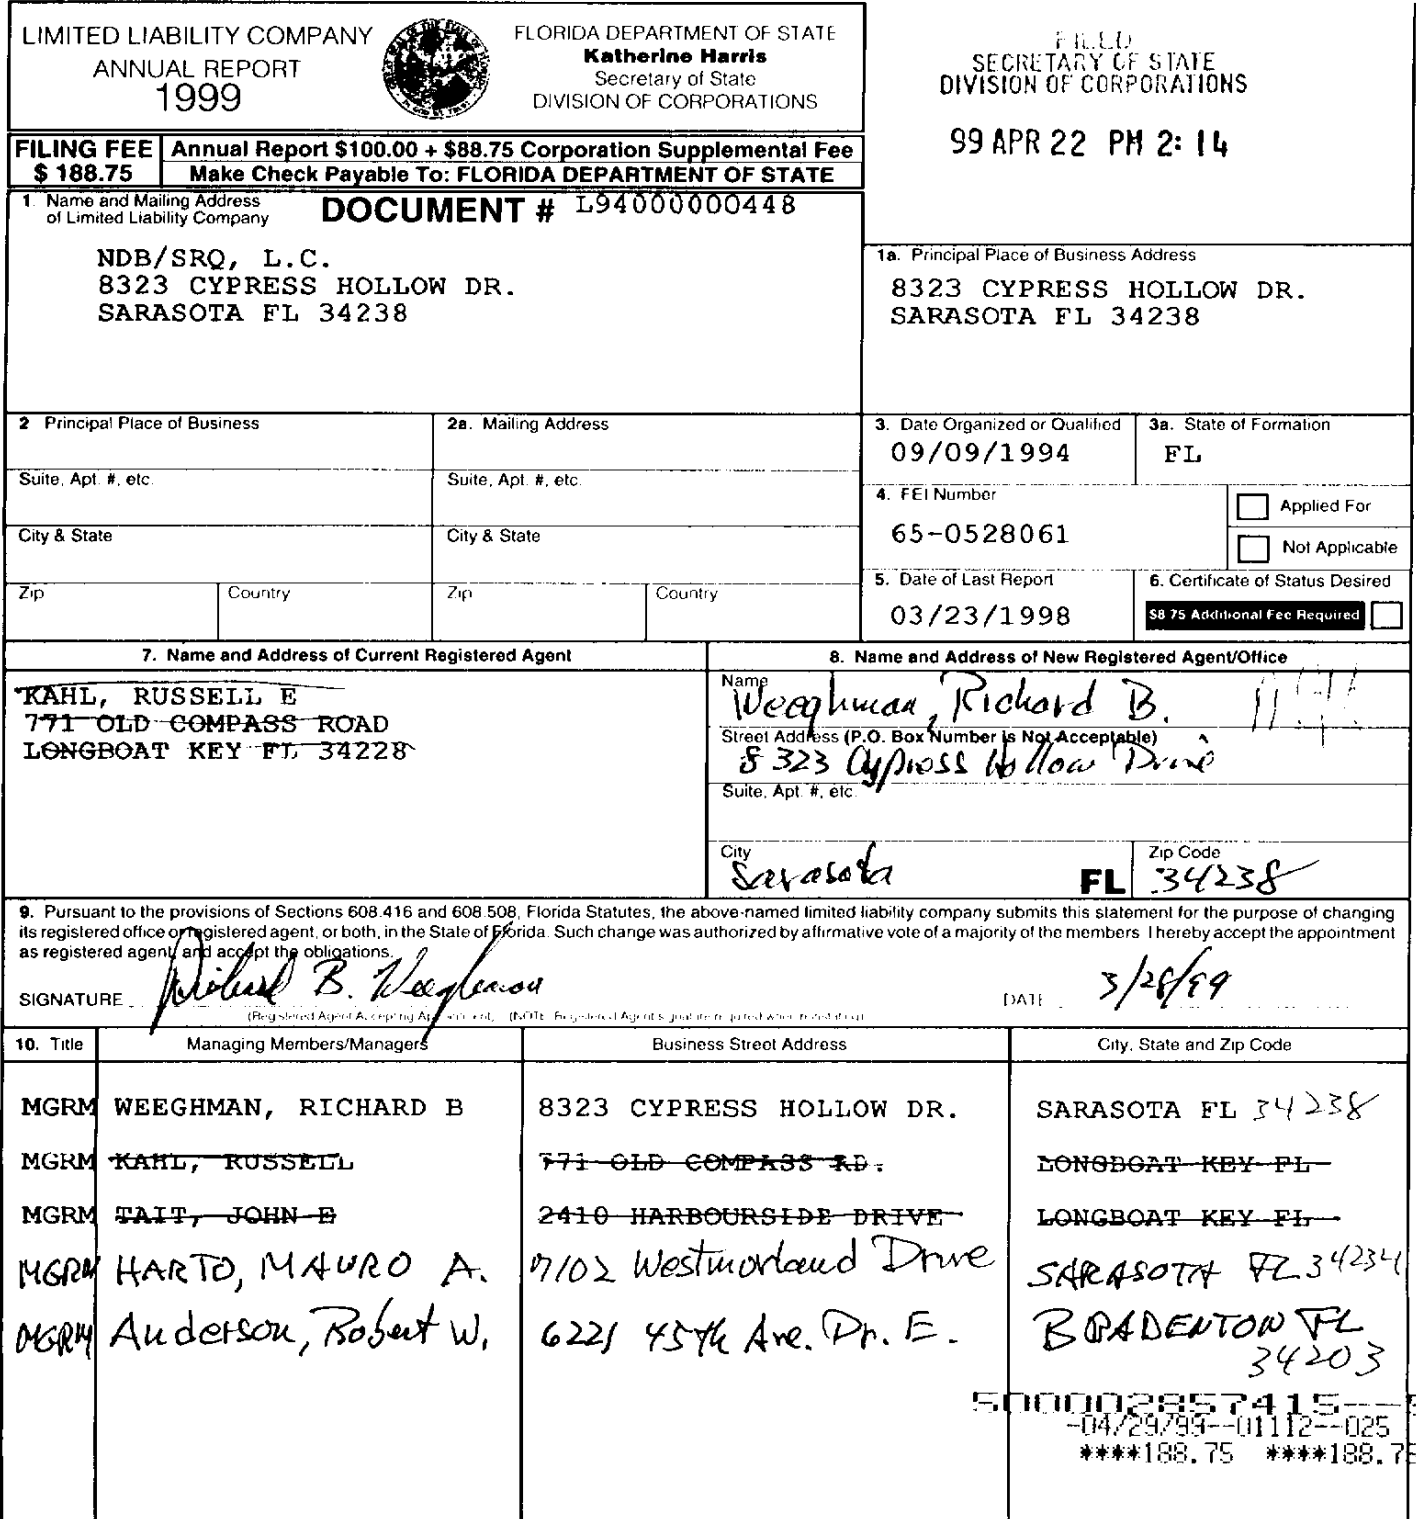 LIMITED LIABILITY COMPANY
ANNUAL REPORT
1999
FLORIDA DEPARTMENT OF STATE
Katherine Harris
Secretary of State
DIVISION OF CORPORATIONS
FILED
SECRETARY OF STATE
DIVISION OF CORPORATIONS
99 APR 22 PM 2:14
FILING FEE
$ 188.75
Annual Report $100.00 + $88.75 Corporation Supplemental Fee
Make Check Payable To: FLORIDA DEPARTMENT OF STATE
1. Name and Mailing Address
of Limited Liability Company
DOCUMENT # L94000000448
NDB/SRQ, L.C.
8323 CYPRESS HOLLOW DR.
SARASOTA FL 34238
1a. Principal Place of Business Address
8323 CYPRESS HOLLOW DR.
SARASOTA FL 34238
2 Principal Place of Business
2a. Mailing Address
Suite, Apt. #, etc.
Suite, Apt. #, etc.
City & State
City & State
Zip
Country
Zip
Country
3. Date Organized or Qualified
09/09/1994
3a. State of Formation
FL
4. FEI Number
65-0528061
Applied For
Not Applicable
5. Date of Last Report
03/23/1998
6. Certificate of Status Desired
$8.75 Additional Fee Required
7. Name and Address of Current Registered Agent
KAHL, RUSSELL E
771 OLD COMPASS ROAD
LONGBOAT KEY FL 34228
8. Name and Address of New Registered Agent/Office
Name
Weeghman, Richard B.
Street Address (P.O. Box Number is Not Acceptable)
8323 Cypress Hollow Drive
Suite, Apt. #, etc.
City
Sarasota
FL
Zip Code
34238
9. Pursuant to the provisions of Sections 608.416 and 608.508, Florida Statutes, the above-named limited liability company submits this statement for the purpose of changing
its registered office or registered agent, or both, in the State of Florida. Such change was authorized by affirmative vote of a majority of the members. I hereby accept the appointment
as registered agent, and accept the obligations.
SIGNATURE Richard B. Weeghman
DATE 3/28/99
(Registered Agent Accepting Appointment) (NOTE: Registered Agent signature required when reinstating)
10. Title
Managing Members/Managers
Business Street Address
City, State and Zip Code
MGRM WEEGHMAN, RICHARD B 8323 CYPRESS HOLLOW DR. SARASOTA FL 34238
MGRM KAHL, RUSSELL 771 OLD COMPASS RD. LONGBOAT KEY FL
MGRM TAIT, JOHN E 2410 HARBOURSIDE DRIVE LONGBOAT KEY FL
MGRM HARTO, MAURO A. 7102 Westmorland Drive SARASOTA FL 34234
MGRM Anderson, Robert W. 6221 45th Ave. Dr. E. BRADENTON FL
34203
500002857415---
-04/29/99--01112--025
****188.75 ****188.75